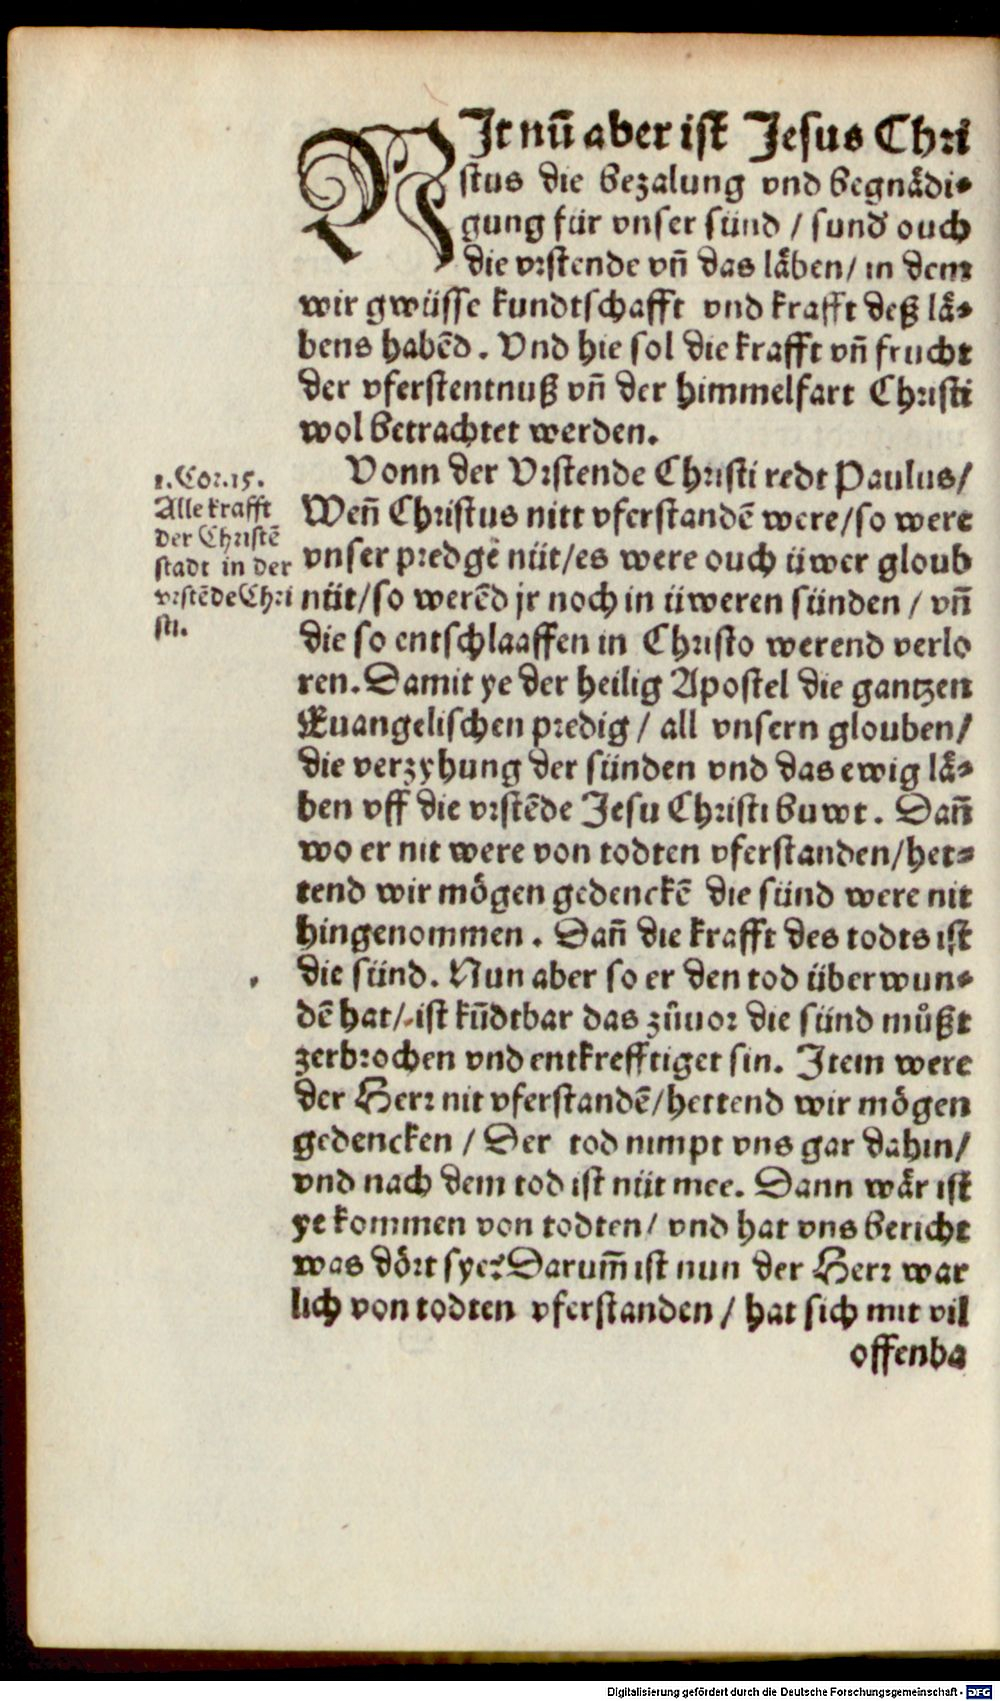 NIt nũ aber ist Jesus Chri
stus die bezalung vnd begnådi⸗
gung für vnser sünd / sund' ouch
die vrstende vñ das låben / in dem
wir gwüsse kundtschafft vnd krafft deß lå⸗
bens habẽd. Vnd hie sol die krafft vñ frucht
der vferstentnuß vñ der himmelfart Christi
wol betrachtet werden.
Vonn der Vrstende Christi redt Paulus /
Weñ Christus nitt vferstandẽ were / so were
vnser predgẽ nüt / es were ouch üwer gloub
nüt / so werẽd jr noch in üweren sünden / vñ
die so entschlaaffen in Christo werend verlo
ren. Damit ye der heilig Apostel die gantzen
Euangelischen predig / all vnsern glouben /
die verzyhung der sünden vnd das ewig lå⸗
ben vff die vrstẽde Jesu Christi buwt. Dañ
wo er nit were von todten vferstanden / het⸗
tend wir mögen gedenckẽ die sünd were nit
hingenommen. Dañ die krafft des todts ist
die sünd. Nun aber so er den tod überwun⸗
dẽ hat / ist kũdtbar das zůuor die sünd můßt
zerbrochen vnd entkrefftiget sin. Item were
der Herr nit vferstandẽ / hettend wir mögen
gedencken / Der tod nimpt vns gar dahin /
vnd nach dem tod ist nüt mee. Dann wår ist
ye kommen von todten / vnd hat vns bericht
was dört sye? Darum̃ ist nun der Herr war
lich von todten vferstanden / hat sich mit vil
offenba
1. Cor. 15.
Alle krafft
der Christẽ
stadt in der
vrstẽde Chri
sti.
Digitalisierung gefördert durch die Deutsche Forschungsgemeinschaft - DFG